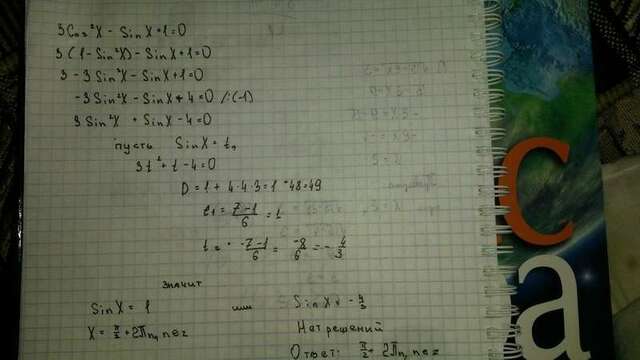 3Cos²X - SinX + 1 = 0
3(1-Sin²X) - SinX + 1 = 0
3 - 3Sin²X - SinX + 1 = 0
-3Sin²X - SinX + 4 = 0 /:(-1)
3Sin²X + SinX - 4 = 0
пусть SinX = t,
3t² + t - 4 = 0
D = 1 + 4·4·3 = 1 + 48 = 49
t₁ = 7-1/6 = 1
t₂ = -7-1/6 = -8/6 = -4/3
значит
SinX = 1 или SinX = -4/3
X = π/2 + 2πn, n∈z Нет решений
Ответ: π/2 + 2πn, n∈z
С
а